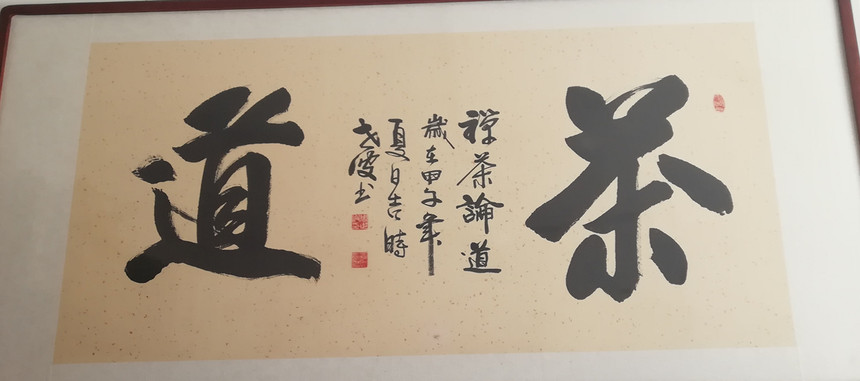 茶
禅茶論道
歲在甲子年
夏日吉時
書
道